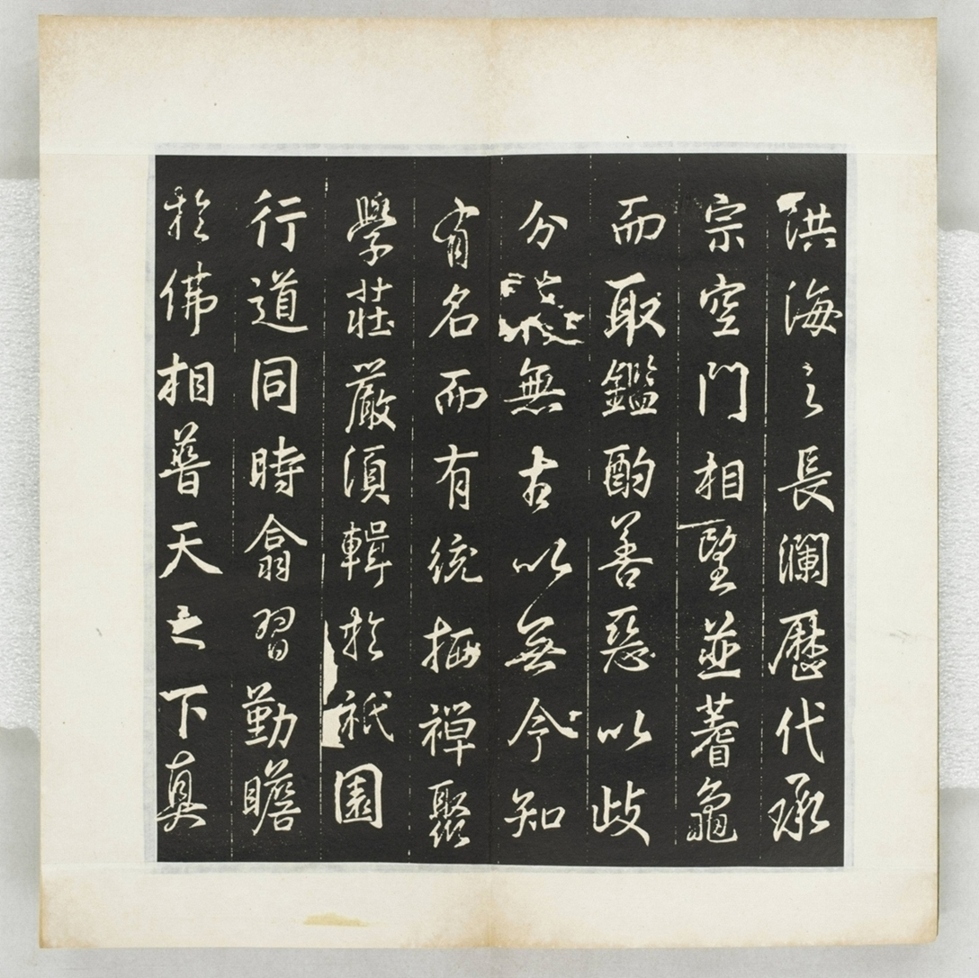 洪海之長瀾歷代承
宗空門相望並蓍龜
而取鑑酌善惡以歧
分無古以無今知
有名而有統柄禪聚
學莊嚴須輯於祇園
行道同時翕習勤瞻
於佛相普天之下真